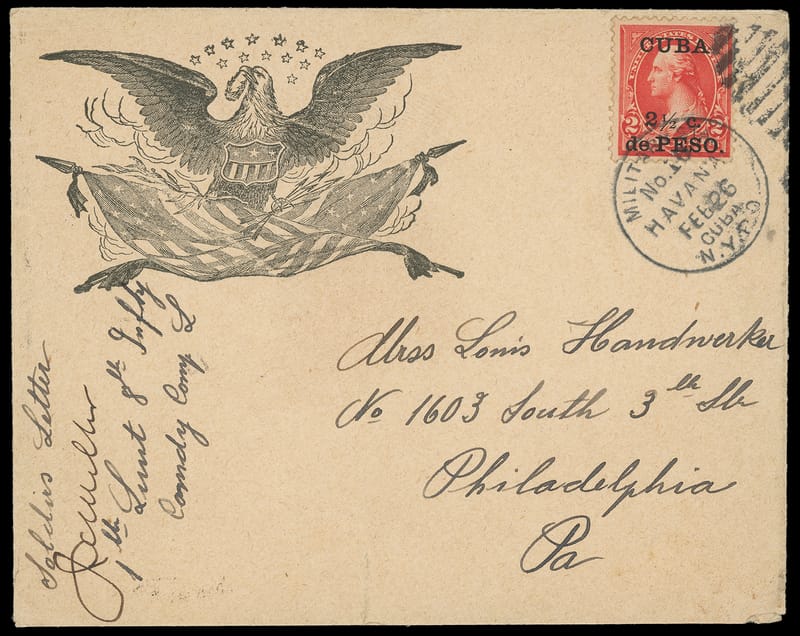 CUBA
UNITED STATES
2 2
2½ c.
de PESO.
MILIT
No. 16
HAVANA
FEB 26
CUBA
N.Y.P.O
Mrss Louis Handwerker
No 1603 South 3th Str
Philadelphia
Pa
Soldiers Letter
1th Liunt 8th Infty
Comdy Comp L